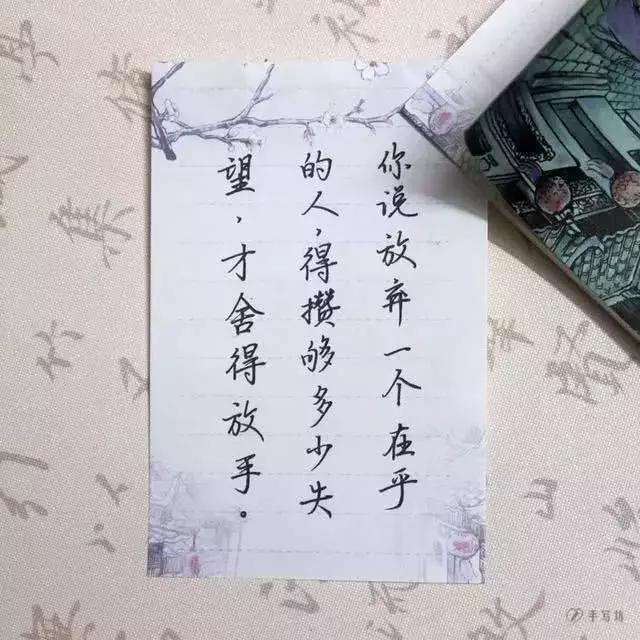 你说放弃一个在乎
的人,得攒够多少失
望,才舍得放手。
手写坊